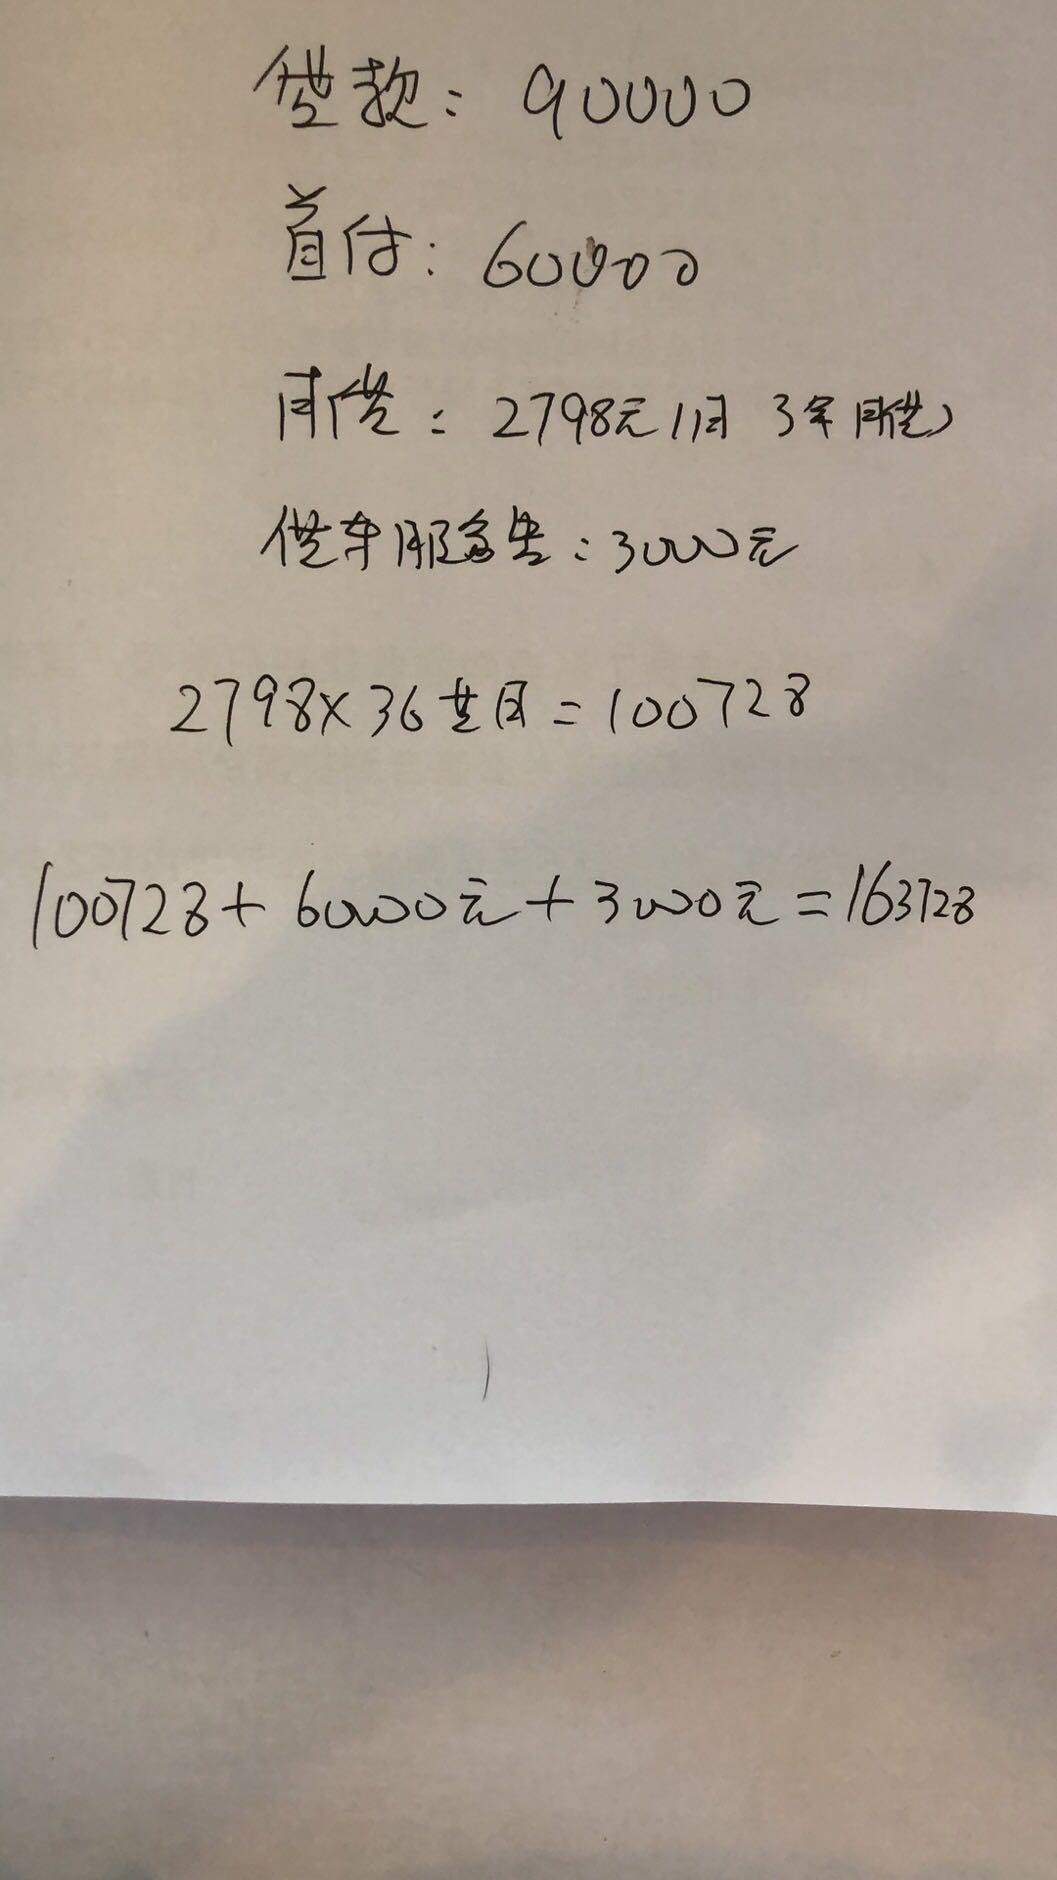 贷款：90000
首付：60000
月供：2798元/1月 3年月供)
供车服务费：3000元
2798×36个月=100728
100728+60000元+3000元=163728